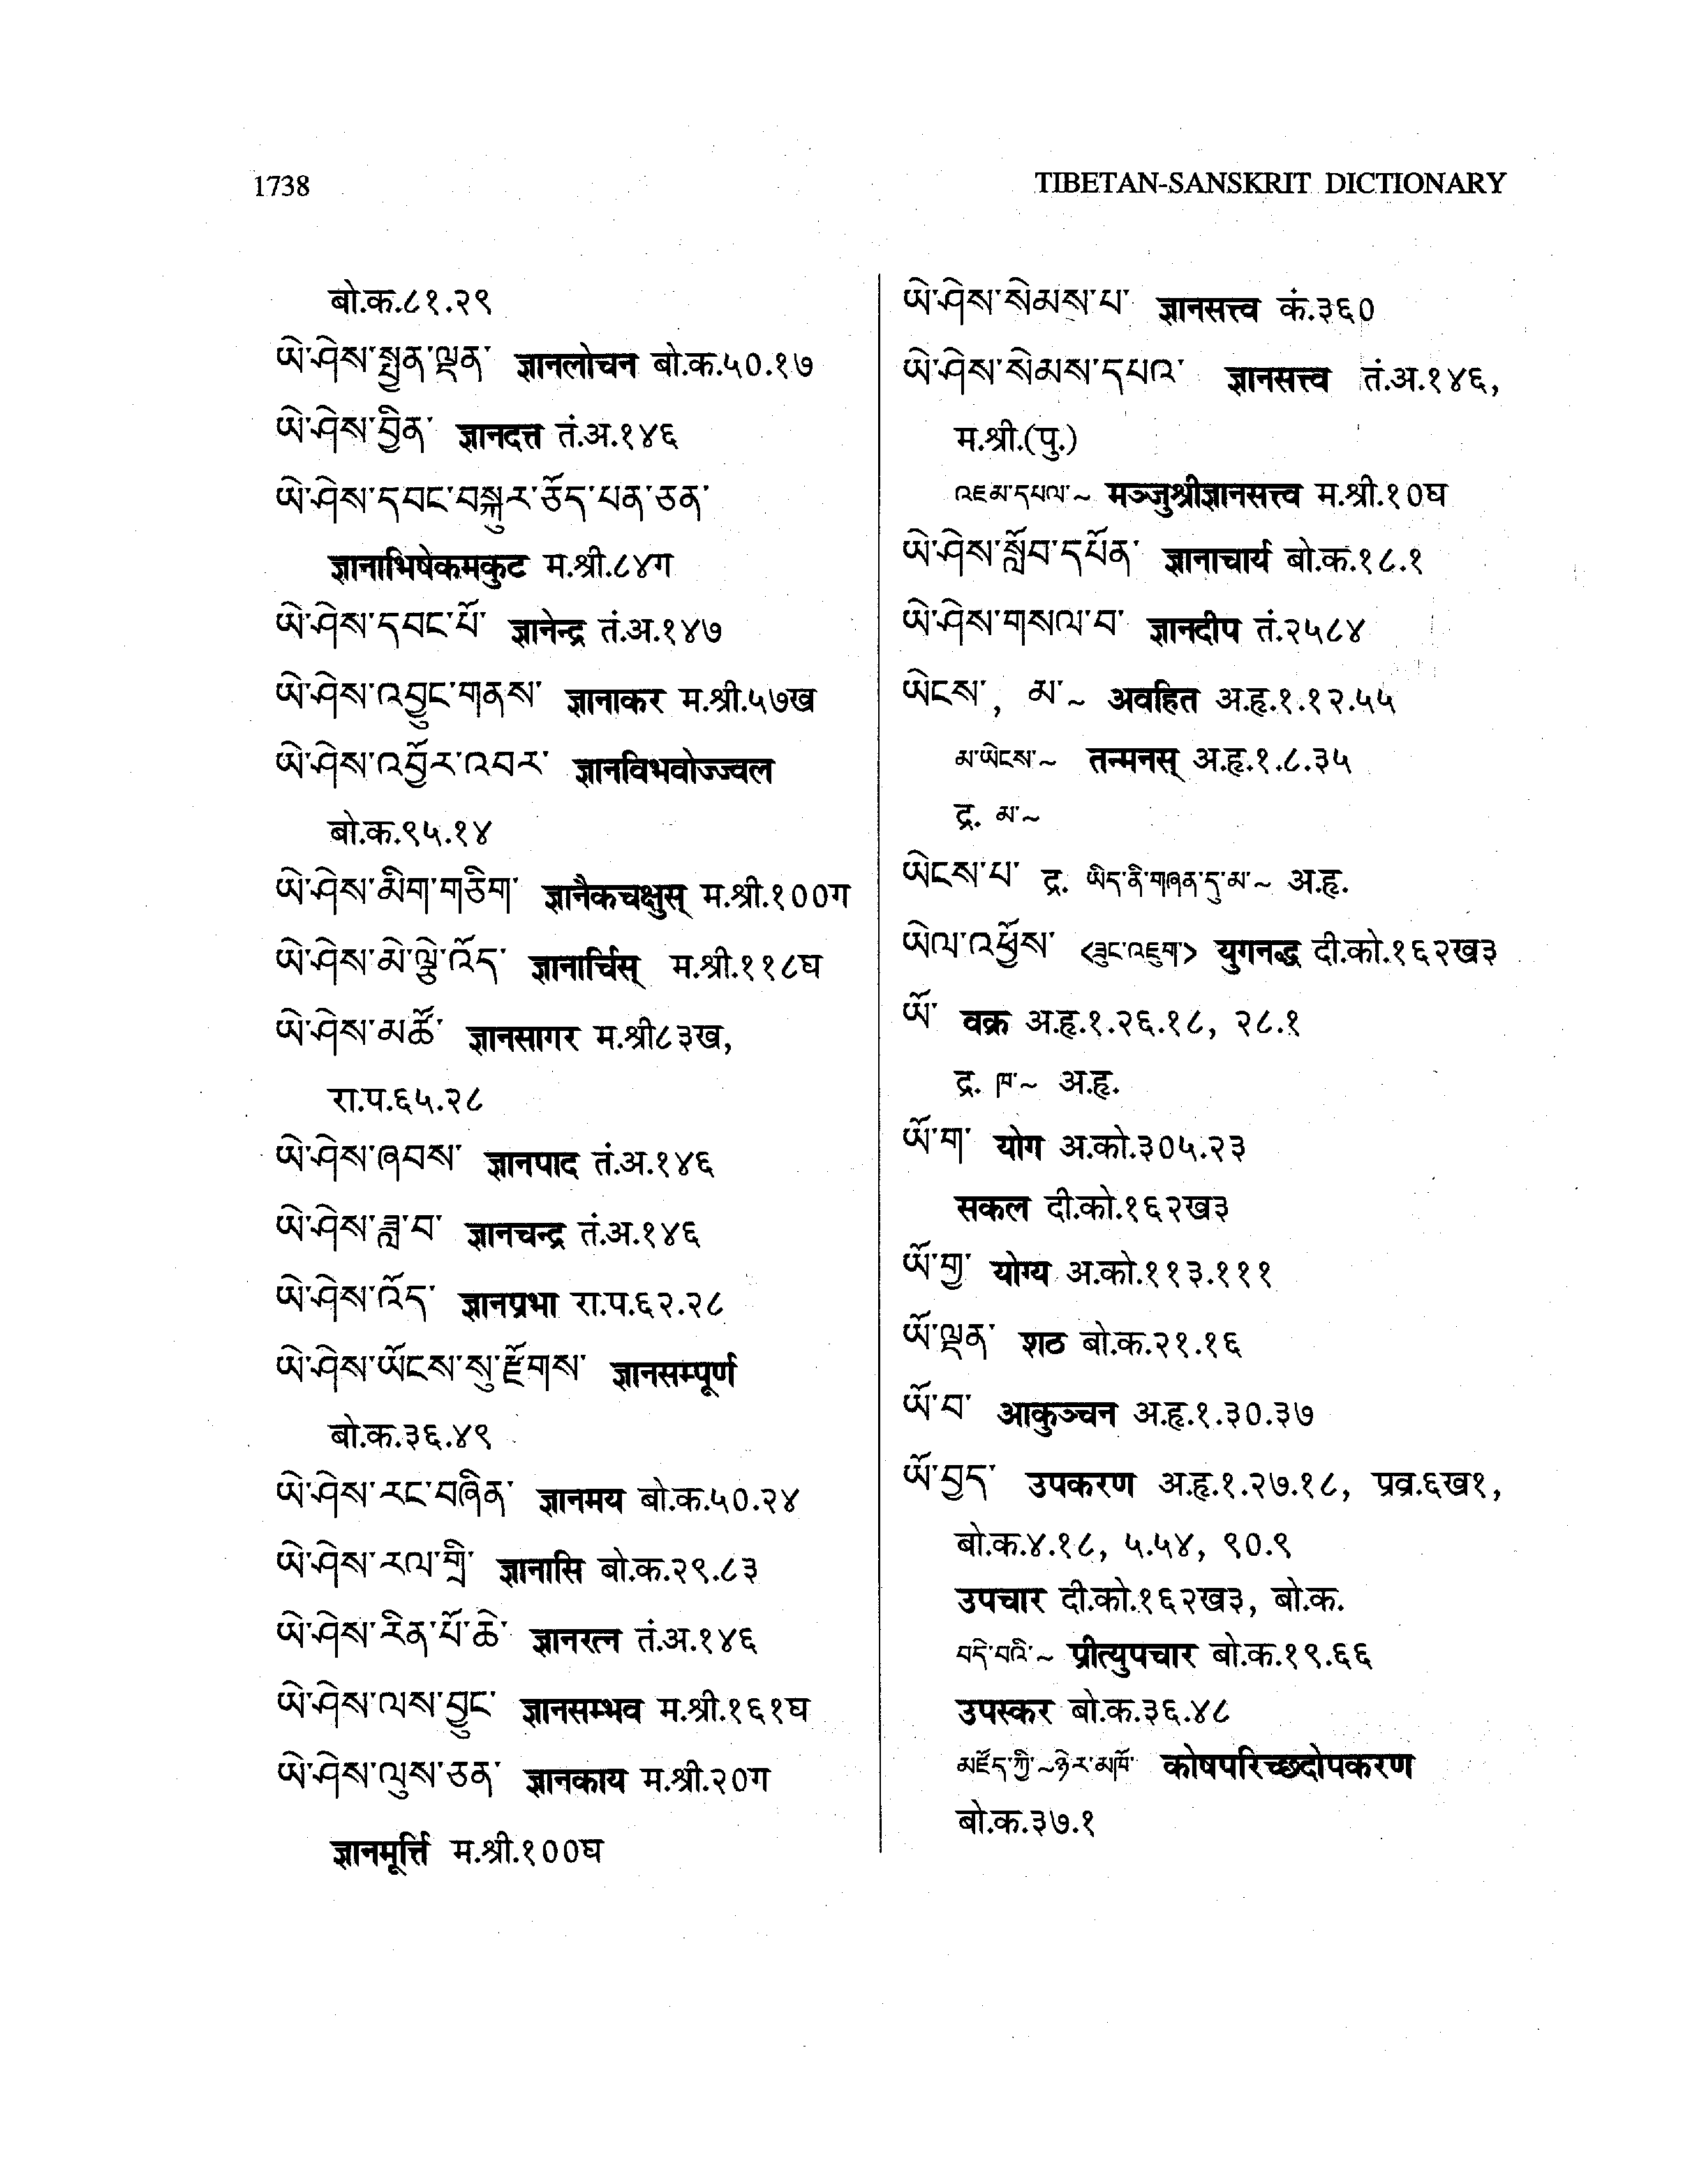 1738
TIBETAN-SANSKRIT DICTIONARY
बो.क.८१.२९
ཡེ་ཤེས་སྤྱན་ལྡན་ ज्ञानलोचन बो.क.५०.१७
ཡེ་ཤེས་བྱིན་ ज्ञानदत्त तं.अ.१४६
ཡེ་ཤེས་དབང་བསྐུར་ཅོད་པན་ཅན་
ज्ञानाभिषेकमकुट म.श्री.८४ग
ཡེ་ཤེས་དབང་པོ་ ज्ञानेन्द्र तं.अ.१४७
ཡེ་ཤེས་འབྱུང་གནས་ ज्ञानाकर म.श्री.५७ख
ཡེ་ཤེས་འབྱོར་འབར་ ज्ञानविभवोज्ज्वल
बो.क.९५.१४
ཡེ་ཤེས་མིག་གཅིག་ ज्ञानैकचक्षुस् म.श्री.१००ग
ཡེ་ཤེས་མེ་ལྕེ་འོད་ ज्ञानार्चिस् म.श्री.११८घ
ཡེ་ཤེས་མཚོ་ ज्ञानसागर म.श्री८३ख,
रा.प.६५.२८
ཡེ་ཤེས་ཞབས་ ज्ञानपाद तं.अ.१४६
ཡེ་ཤེས་ཟླ་བ་ ज्ञानचन्द्र तं.अ.१४६
ཡེ་ཤེས་འོད་ ज्ञानप्रभा रा.प.६२.२८
ཡེ་ཤེས་ཡོངས་སུ་རྫོགས་ ज्ञानसम्पूर्ण
बो.क.३६.४९
ཡེ་ཤེས་རང་བཞིན་ ज्ञानमय बो.क.५०.२४
ཡེ་ཤེས་རལ་གྲི་ ज्ञानासि बो.क.२९.८३
ཡེ་ཤེས་རིན་པོ་ཆེ་ ज्ञानरत्न तं.अ.१४६
ཡེ་ཤེས་ལས་བྱུང་ ज्ञानसम्भव म.श्री.१६१घ
ཡེ་ཤེས་ལུས་ཅན་ ज्ञानकाय म.श्री.२०ग
ज्ञानमूर्त्ति म.श्री.१००घ
ཡེ་ཤེས་སེམས་པ་ ज्ञानसत्त्व कं.३६०
ཡེ་ཤེས་སེམས་དཔའ་ ज्ञानसत्त्व तं.अ.१४६,
म.श्री.(पु.)
འཇམ་དཔལ་~ मञ्जुश्रीज्ञानसत्त्व म.श्री.१०घ
ཡེ་ཤེས་སློབ་དཔོན་ ज्ञानाचार्य बो.क.१८.१
ཡེ་ཤེས་གསལ་བ་ ज्ञानदीप तं.२५८४
ཡེངས་, མ་~ अवहित अ.हृ.१.१२.५५
མ་ཡེངས་~ तन्मनस् अ.हृ.१.८.३५
द्र. མ་~
ཡེངས་པ་ द्र. ཡིད་ནི་གཞན་དུ་མ་~ अ.हृ.
ཡེལ་འཕྱོས་ <ཟུང་འཇུག> युगनद्ध दी.को.१६२ख३
ཡོ་ वक्र अ.हृ.१.२६.१८, २८.१
द्र. ཁ་~ अ.हृ.
ཡོ་ག་ योग अ.को.३०५.२३
सकल दी.को.१६२ख३
ཡོ་གྱ་ योग्य अ.को.११३.१११
ཡོ་ལྡན་ शठ बो.क.२१.१६
ཡོ་བ་ आकुञ्चन अ.हृ.१.३०.३७
ཡོ་བྱད་ उपकरण अ.हृ.१.२७.१८, प्रव्र.६ख१,
बो.क.४.१८, ५.५४, ९०.९
उपचार दी.को.१६२ख३, बो.क.
བདེ་བའི་~ प्रीत्युपचार बो.क.१९.६६
उपस्कर बो.क.३६.४८
མཛོད་ཀྱི་~ཉེར་མཁོ་ कोषपरिच्छदोपकरण
बो.क.३७.१